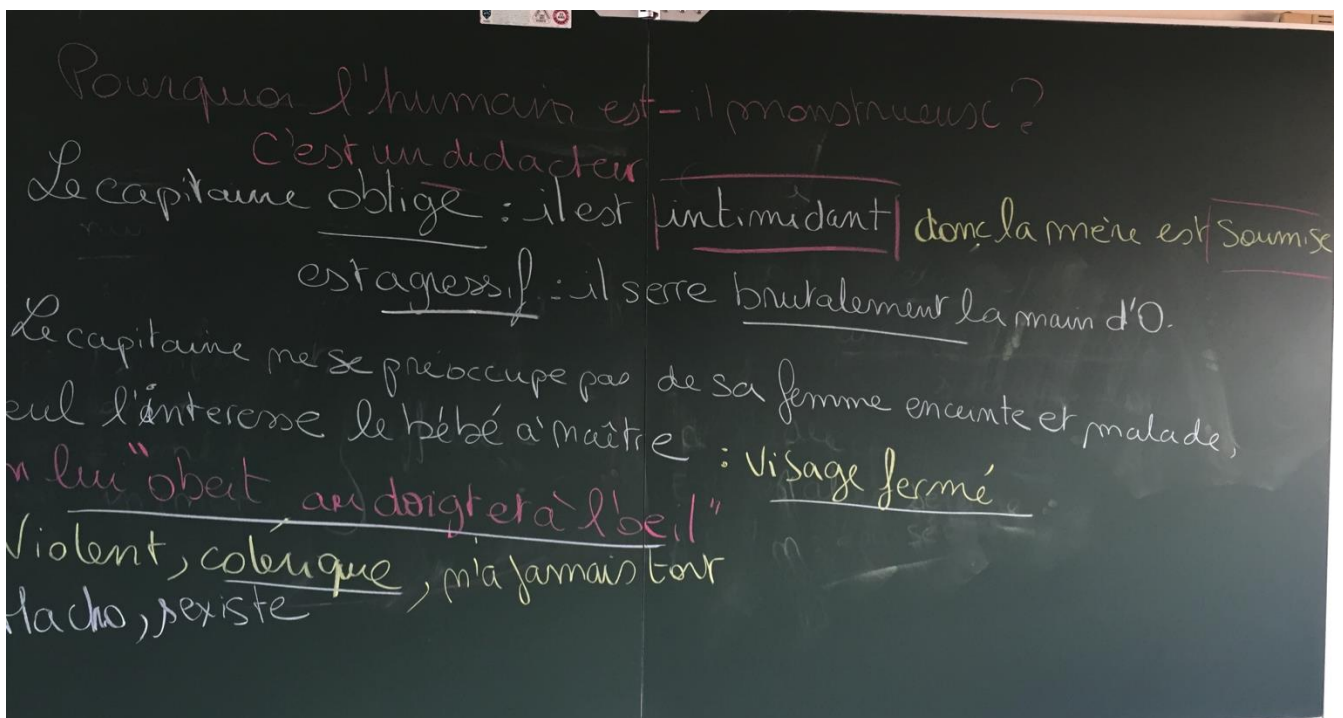 Pourquoi l'humain est-il monstrueux ?
C'est un didacteur
Le capitaine oblige : il est intimidant donc la mère est soumise
est agressif : il serre brutalement la main d'O.
Le capitaine ne se préoccupe pas de sa femme enceinte et malade,
eul l'interesse le bébé à naître : visage fermé
n lui "obeit au doigt et à l'oeil"
Violent, colérique, n'a jamais tort
Macho, sexiste